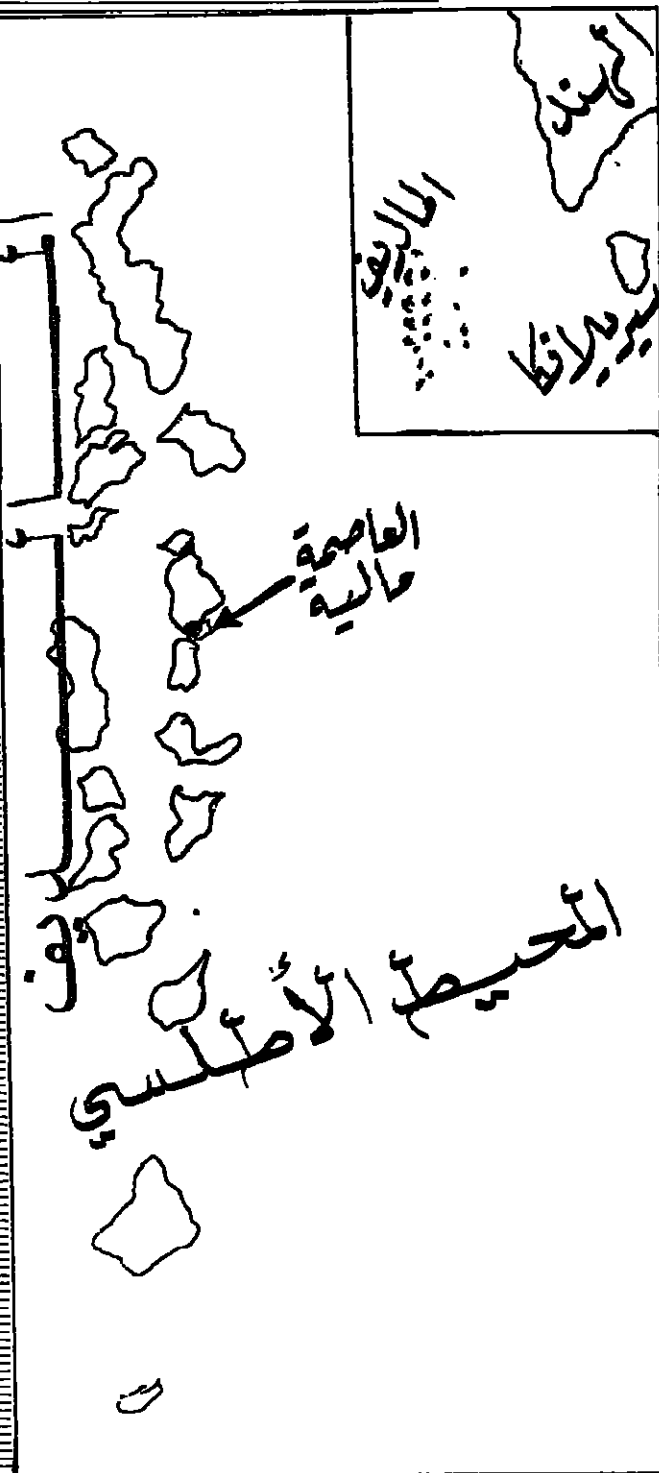 الهند
المالديف
سيريلانكا
العاصمة
ماليه
المحيط الأطلسي